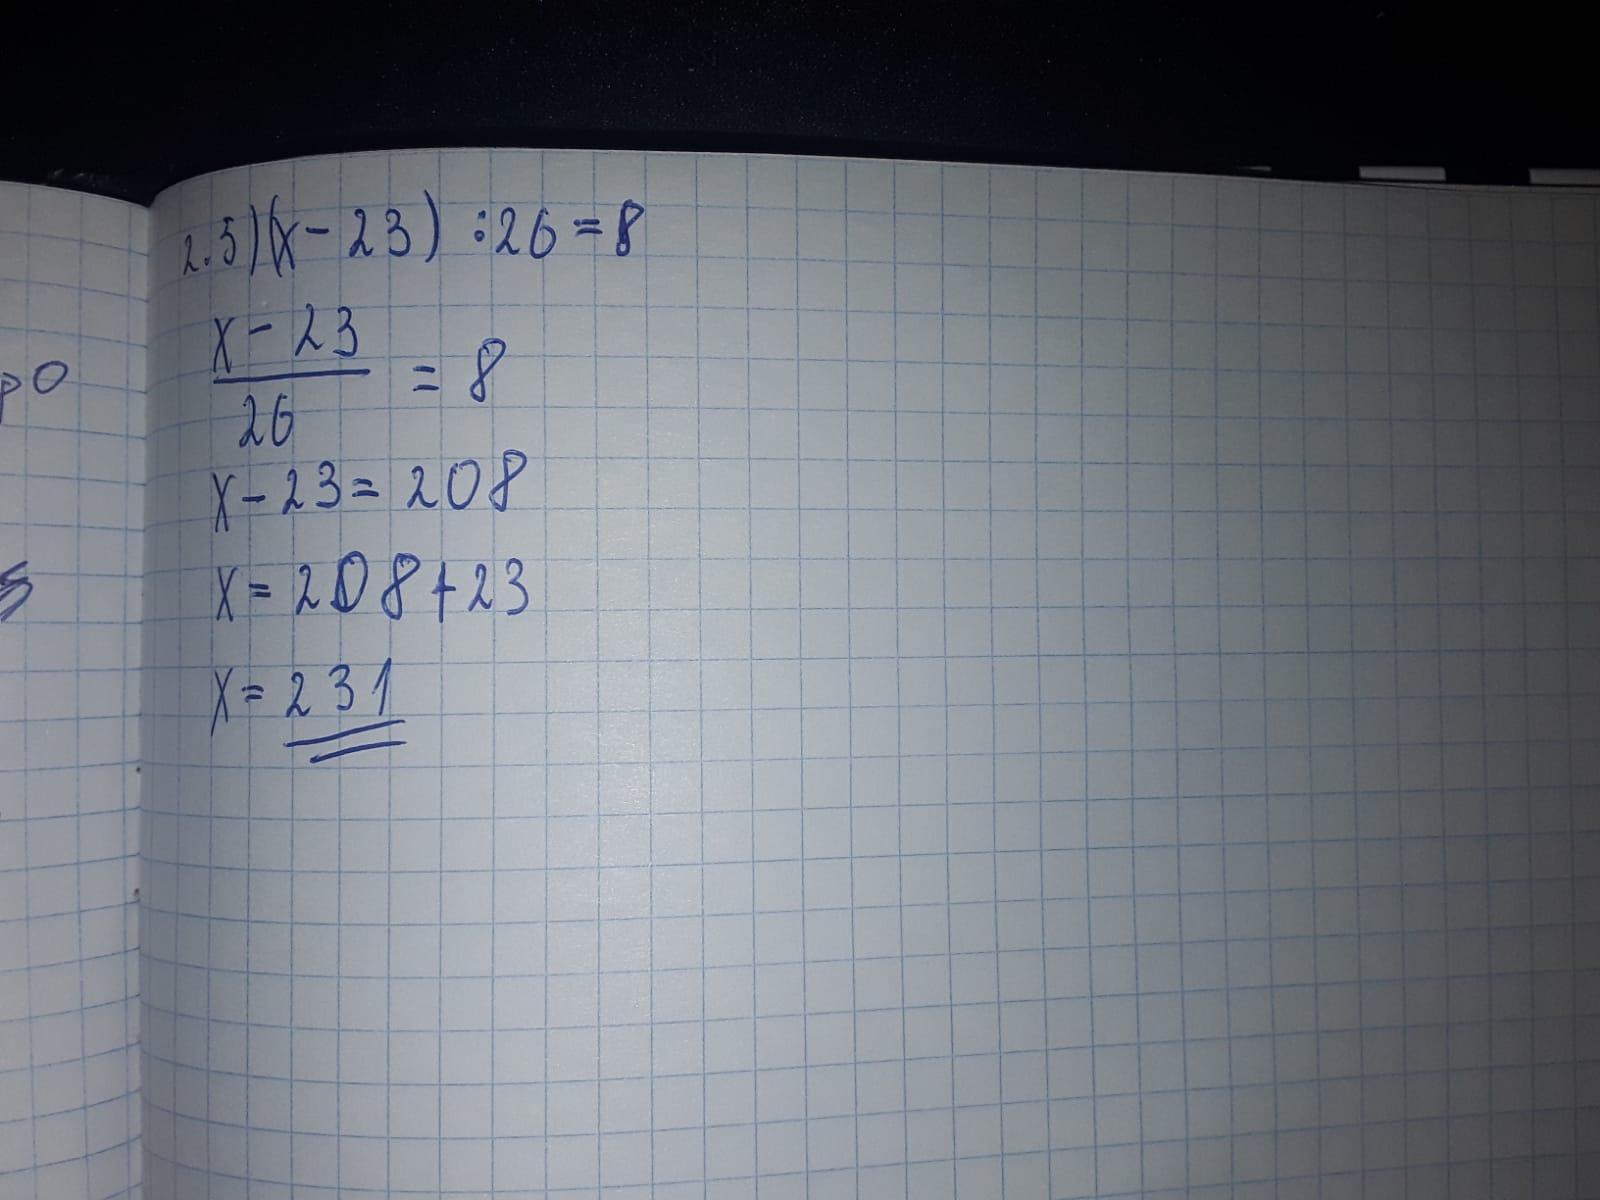 2.5) (x - 23) : 26 = 8
x - 23
26
= 8
x - 23 = 208
x = 208 + 23
x = 231